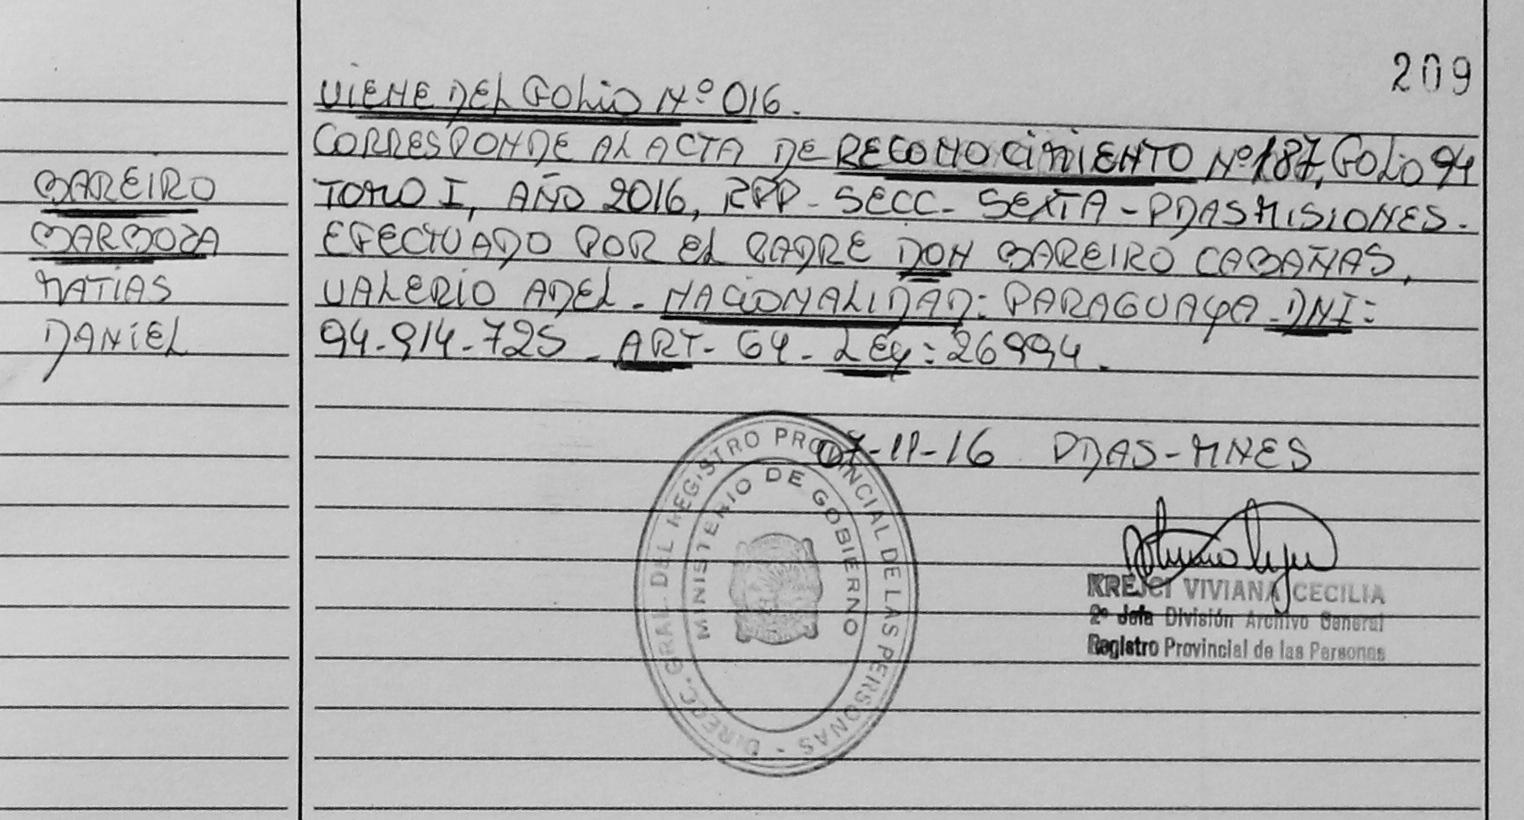 209
VIENE DEL FOLIO Nº 016.
CORRESPONDE AL ACTA DE RECONOCIMIENTO Nº 187, FOLIO 94
TOMO I, AÑO 2016, RPP - SECC - SEXTA - PDAS MISIONES.
EFECTUADO POR EL PADRE DON BAREIRO CABAÑAS,
VALERIO ADEL - NACIONALIDAD: PARAGUAYA - DNI:
94-914-725 - ART - 64 - LEY: 26994.
BAREIRO
BARBOZA
MATIAS
DANIEL
07-11-16 PDAS-MNES
DIRECC. GRAL. DEL REGISTRO PROVINCIAL DE LAS PERSONAS -
MINISTERIO DE GOBIERNO
KREJCI VIVIANA CECILIA
2º Jefa División Archivo General
Registro Provincial de las Personas